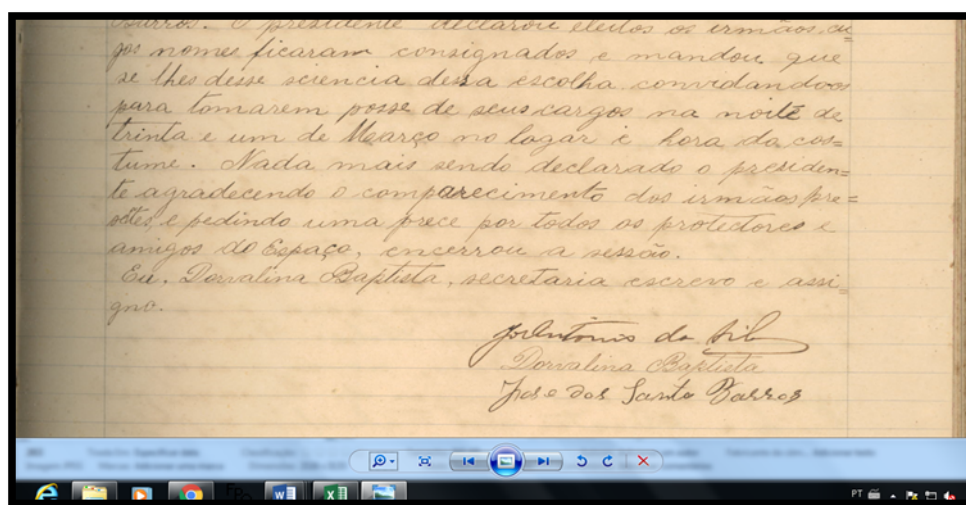 Barros. O presidente declarou eleitos os irmãos cu=
jos nomes ficaram consignados e mandou que
se lhes desse sciencia dessa escolha convidando-os
para tomarem posse de seus cargos na noite de
trinta e um de Março no logar e hora do cos=
tume. Nada mais sendo declarado o presiden=
te agradecendo o comparecimento dos irmãos pre=
sentes, e pedindo uma prece por todos os protectores e
amigos do Espaço, encerrou a sessão.
Eu, Dorvalina Baptista, secretaria escrevo e assi=
gno.
José Antonio da Silva
Dorvalina Baptista
José dos Santo Barros
PT